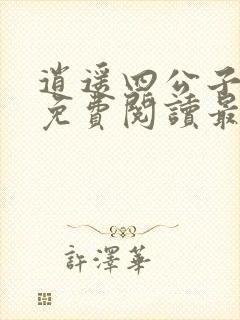 逍遥四公子
免費閱讀最
許澤華